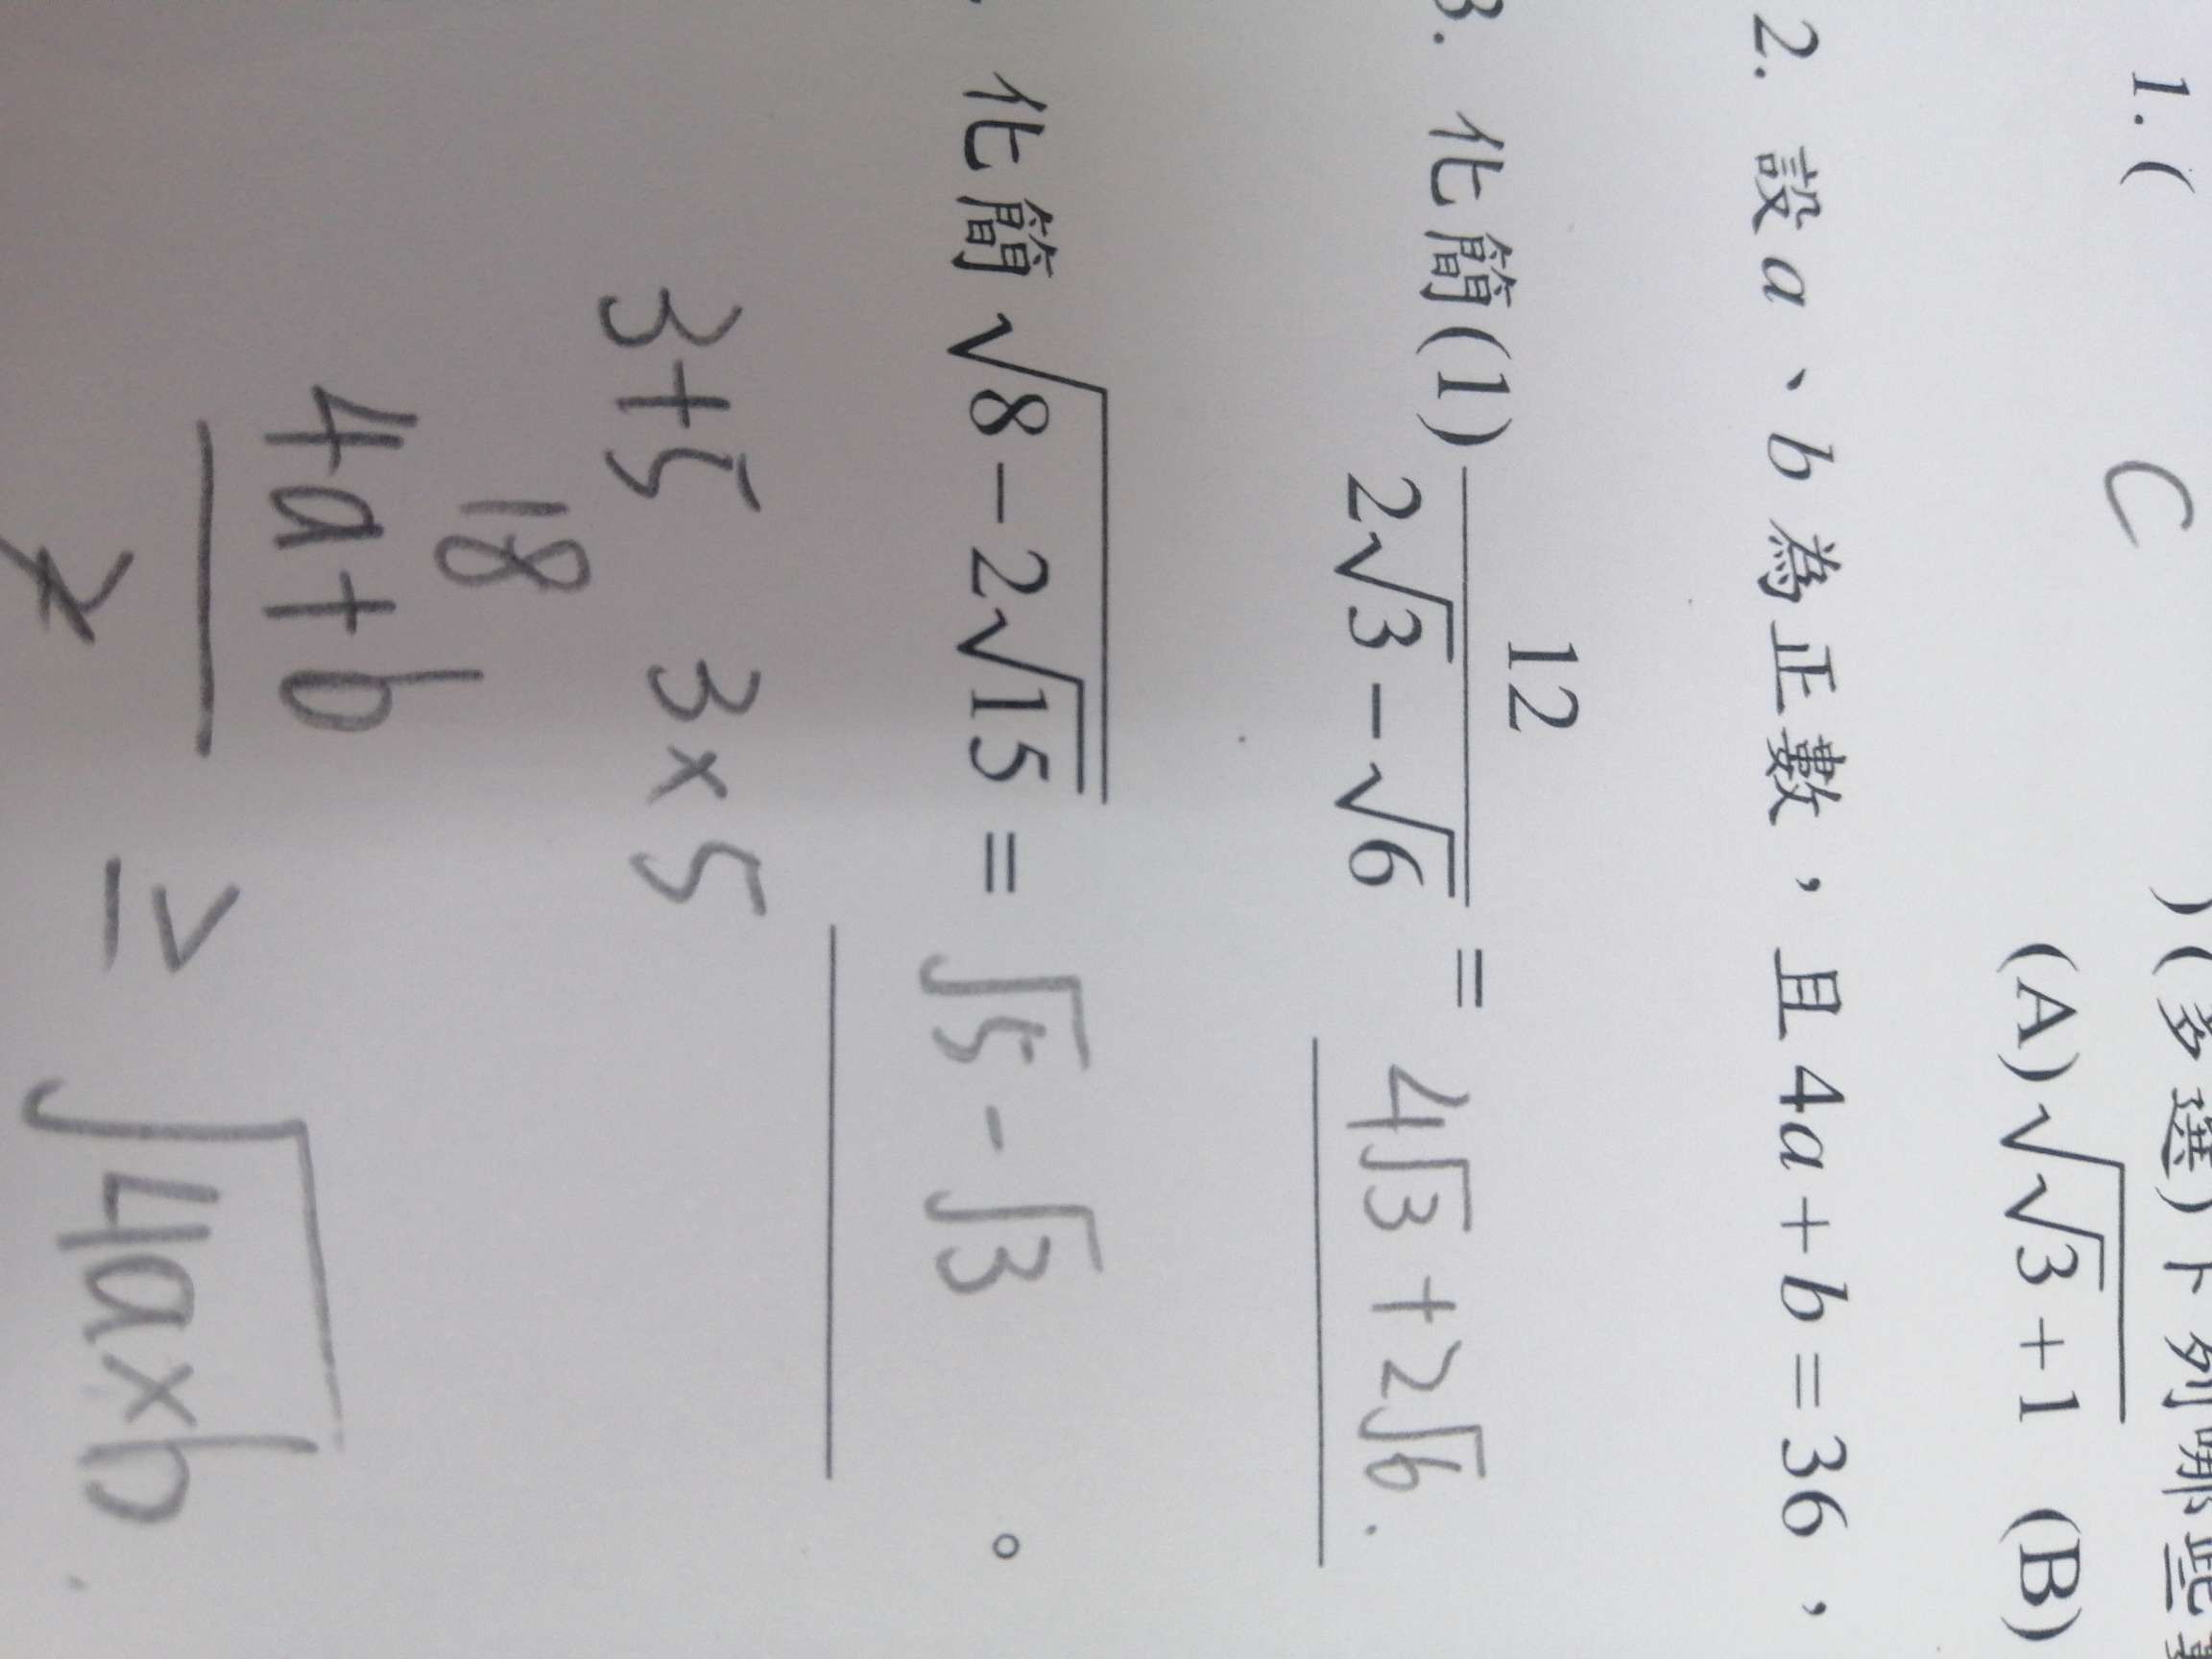 1. ( C ) (多選)下列哪些
(A)√(√3+1) (B)
2. 設a、b為正數，且4a+b=36，
3. 化簡(1) 12/(2√3-√6) = 4√3+2√6.
. 化簡√(8-2√15) = √5-√3 。
3+5 3×5
18
(4a+b)/2 ≥ √(4a×b)